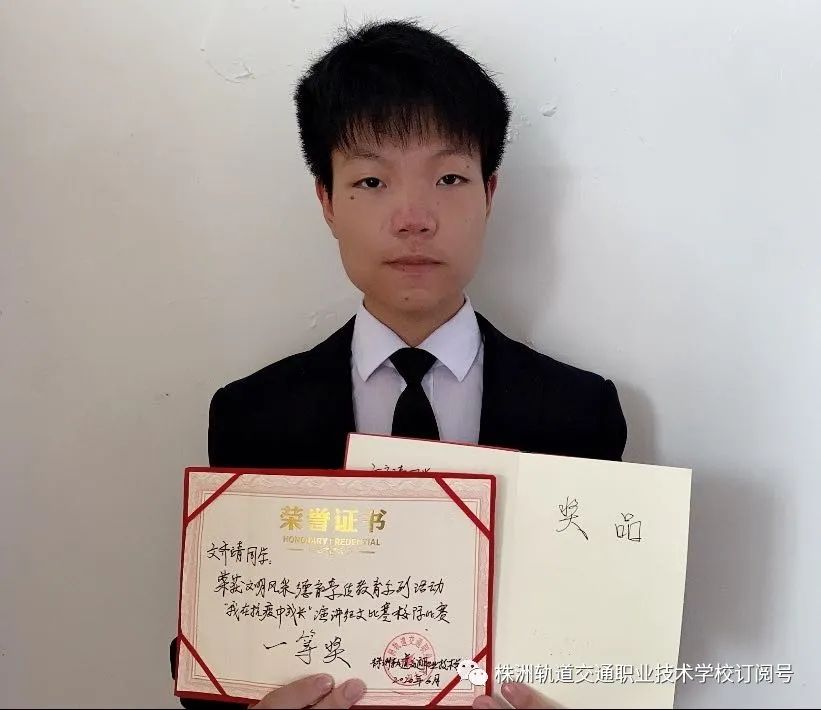 奖品
荣誉证书
HONORARY CREDENTIAL
同学:
荣获文明风采德育系列活动
"我在抗疫中成长"演讲征文比赛校际比赛
一等奖
株洲轨道交通职业技术学校
2020年6月
株洲轨道交通职业技术学校订阅号